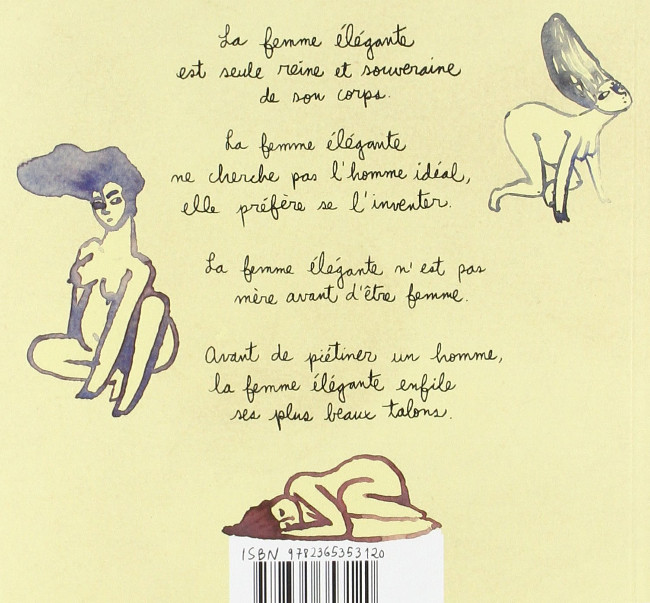 La femme élégante
est seule reine et souveraine
de son corps.
La femme élégante
ne cherche pas l'homme idéal,
elle préfère se l'inventer.
La femme élégante n'est pas
mère avant d'être femme.
Avant de piétiner un homme,
la femme élégante enfile
ses plus beaux talons.
ISBN 9782365353120